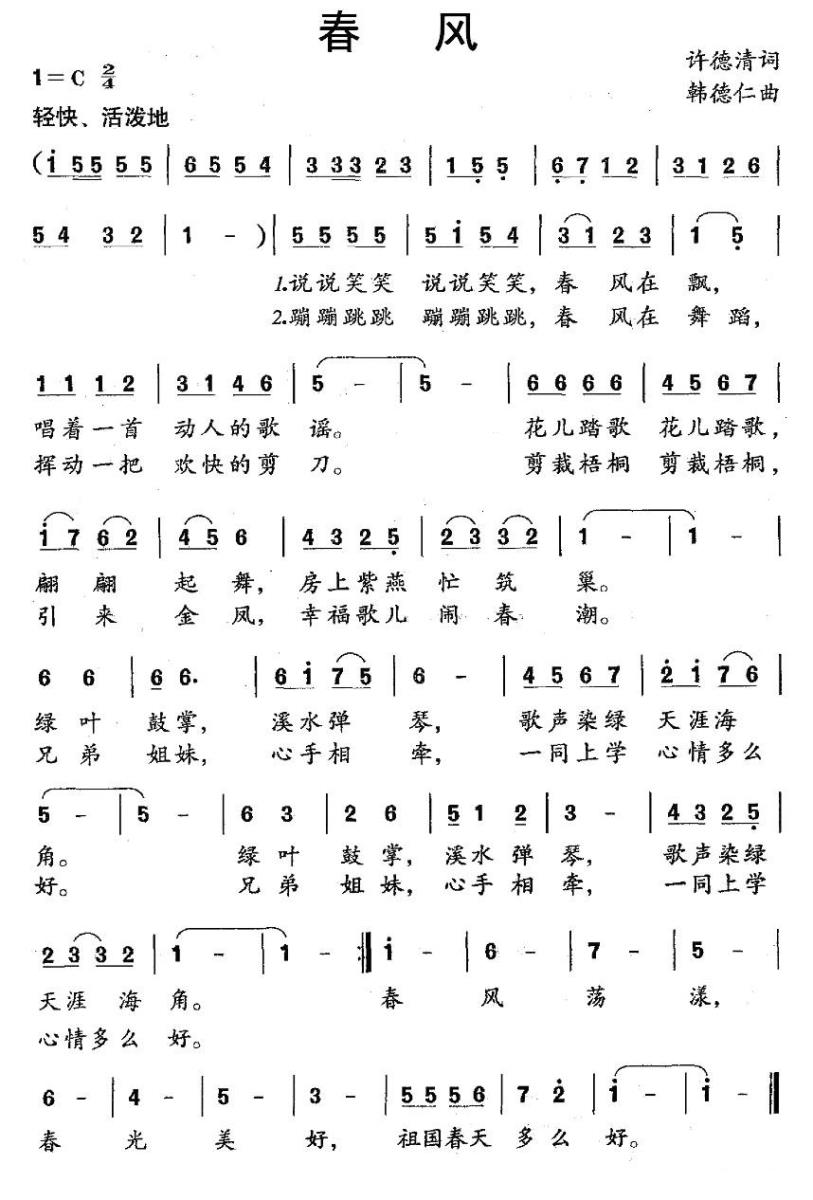 春 风
1=C 2/4
许德清词
韩德仁曲
轻快、活泼地
(i 5 5 5 5 5 | 6 5 5 4 | 3 3 3 2 3 | 1 5 5 | 6 7 1 2 | 3 1 2 6 |
5 4 3 2 | 1 - )| 5 5 5 5 | 5 i 5 4 | 3 1 2 3 | 1 5 |
1.说说笑笑 说说笑笑, 春 风在 飘,
2.蹦蹦跳跳 蹦蹦跳跳, 春 风在 舞 蹈,
1 1 1 2 | 3 1 4 6 | 5 - | 5 - | 6 6 6 6 | 4 5 6 7 |
唱着一首 动人的歌 谣。 花儿踏歌 花儿踏歌,
挥动一把 欢快的剪 刀。 剪裁梧桐 剪裁梧桐,
i 7 6 2 | 4 5 6 | 4 3 2 5 | 2 3 3 2 | 1 - | 1 - |
翩 翩 起 舞, 房上紫燕 忙 筑 巢。
引 来 金 凤, 幸福歌儿 闹 春 潮。
6 6 | 6 6. | 6 i 7 5 | 6 - | 4 5 6 7 | 2 i 7 6 |
绿 叶 鼓 掌, 溪水弹 琴, 歌声染绿 天涯海
兄 弟 姐 妹, 心手相 牵, 一同上学 心情多么
5 - | 5 - | 6 3 | 2 6 | 5 1 2 | 3 - | 4 3 2 5 |
角。 绿 叶 鼓 掌, 溪水 弹 琴, 歌声染绿
好。 兄 弟 姐 妹, 心手 相 牵, 一同上学
2 3 3 2 | 1 - | 1 - :| i - | 6 - | 7 - | 5 - |
天涯 海 角。 春 风 荡 漾,
心情多么 好。
6 - | 4 - | 5 - | 3 - | 5 5 5 6 | 7 2 | i - | i - ‖
春 光 美 好, 祖国春天 多 么 好。